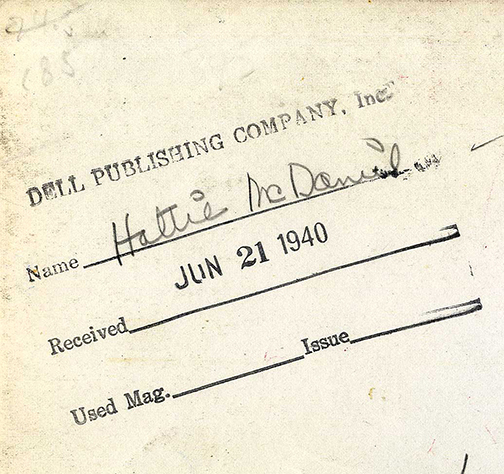 24.5
185
DELL PUBLISHING COMPANY, Inc.
Name Hattie McDaniel
Received JUN 21 1940
Used Mag. Issue